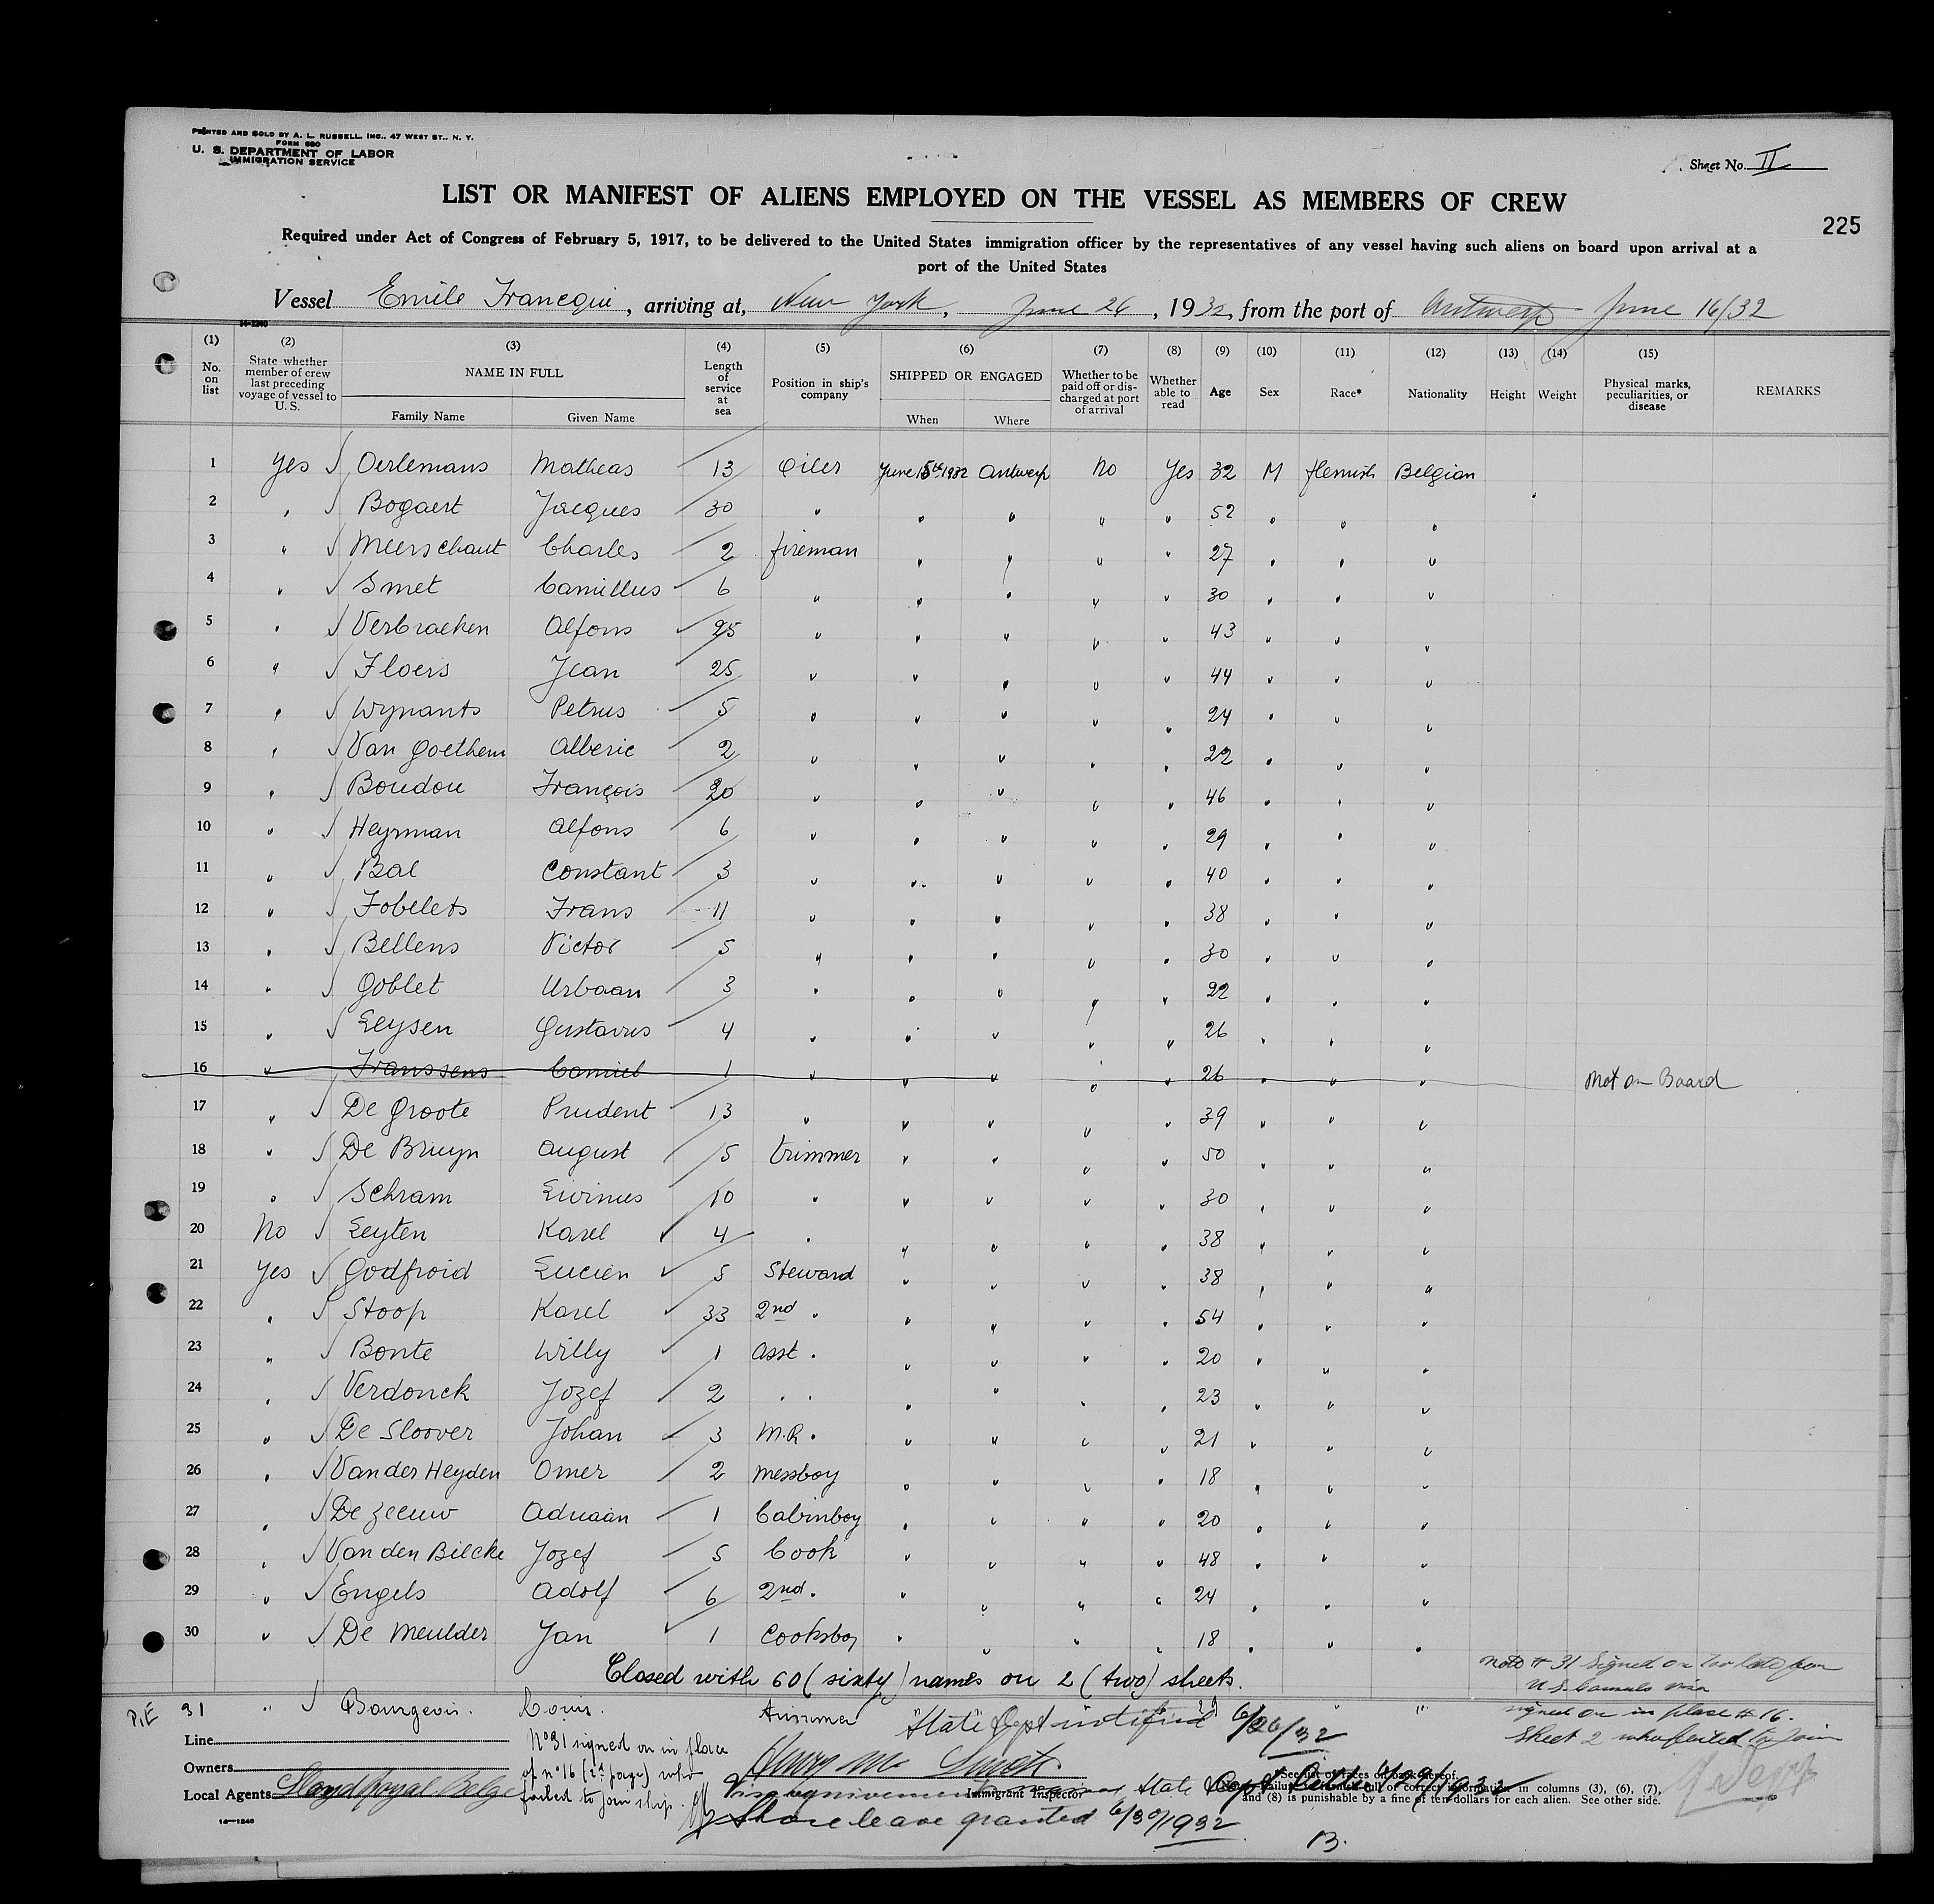 PRINTED AND SOLD BY A. L. RUSSELL, INC., 47 WEST ST., N. Y.
FORM 680
U. S. DEPARTMENT OF LABOR
IMMIGRATION SERVICE
Sheet No. II
LIST OR MANIFEST OF ALIENS EMPLOYED ON THE VESSEL AS MEMBERS OF CREW
225
Required under Act of Congress of February 5, 1917, to be delivered to the United States immigration officer by the representatives of any vessel having such aliens on board upon arrival at a
port of the United States
Vessel Emile Francqui, arriving at, New York, June 26, 1932, from the port of Antwerp June 16/32
14-1240
(1) No. on list (2) State whether member of crew last preceding voyage of vessel to U. S. (3) NAME IN FULL Family Name Given Name (4) Length of service at sea (5) Position in ship's company (6) SHIPPED OR ENGAGED When Where (7) Whether to be paid off or discharged at port of arrival (8) Whether able to read (9) Age (10) Sex (11) Race* (12) Nationality (13) Height (14) Weight (15) Physical marks, peculiarities, or disease REMARKS
1 Yes Oerlemans Matheas 13 Oiler June 15th 1932 Antwerp No Yes 32 M flemish Belgian
2 " Bogaert Jacques 30 " " " " " 52 " " "
3 " Meerschaut Charles 2 fireman " " " " 27 " " "
4 " Smet Camillus 6 " " " " " 30 " " "
5 " Verbraeken Alfons 25 " " " " " 43 " " "
6 " Floers Jean 25 " " " " " 44 " " "
7 " Wynants Petrus 5 " " " " " 24 " " "
8 " Van Goethem Alberic 2 " " " " " 22 " " "
9 " Boudou François 20 " " " " " 46 " " "
10 " Heyrman Alfons 6 " " " " " 29 " " "
11 " Bal Constant 3 " " " " " 40 " " "
12 " Fobelets Frans 11 " " " " " 38 " " "
13 " Bellens Victor 5 " " " " " 30 " " "
14 " Goblet Urbaan 3 " " " " " 22 " " "
15 " Leysen Gustavus 4 " " " " " 26 " " "
16 " Franssens Camiel 1 " " " " " 26 " " " Not on Board
17 " De Groote Prudent 13 " " " " " 39 " " "
18 " De Bruyn August 5 trimmer " " " " 50 " " "
19 " Schram Livinus 10 " " " " " 30 " " "
20 No Leyten Karel 4 " " " " " 38 " " "
21 Yes Godfroid Lucien 5 Steward " " " " 38 " " "
22 " Stoop Karel 33 2nd " " " " " 54 " " "
23 " Bonte Willy 1 asst. " " " " 20 " " "
24 " Verdonck Jozef 2 " " " " " " 23 " " "
25 " De Sloover Johan 3 M.R. " " " " 21 " " "
26 " Van der Heyden Omer 2 messboy " " " " 18 " " "
27 " De Zeeuw Adriaan 1 Cabinboy " " " " 20 " " "
28 " Van den Bilcke Jozef 5 Cook " " " " 48 " " "
29 " Engels Adolf 6 2nd " " " " " 24 " " "
30 " De Meulder Jan 1 Cooksboy " " " " 18 " " "
Closed with 60 (sixty) names on 2 (two) sheets.
Note # 31 Signed on too late for
U.S. Consuls visa
signed on in place # 16.
Sheet 2 who failed to join
31 " Bourgeois. Louis. trimmer " "
State Dept notified 6/26/32
No 31 signed on in place
of no 16 (2d page) who
failed to join ship.
Line
Owners
Local Agents Lloyd Royal Belge
Immigrant Inspector
*See list of races on back hereof.
and (8) is punishable by a fine of ten dollars for each alien. See other side.
Shore leave granted 6/30/1932
B.
14-1240